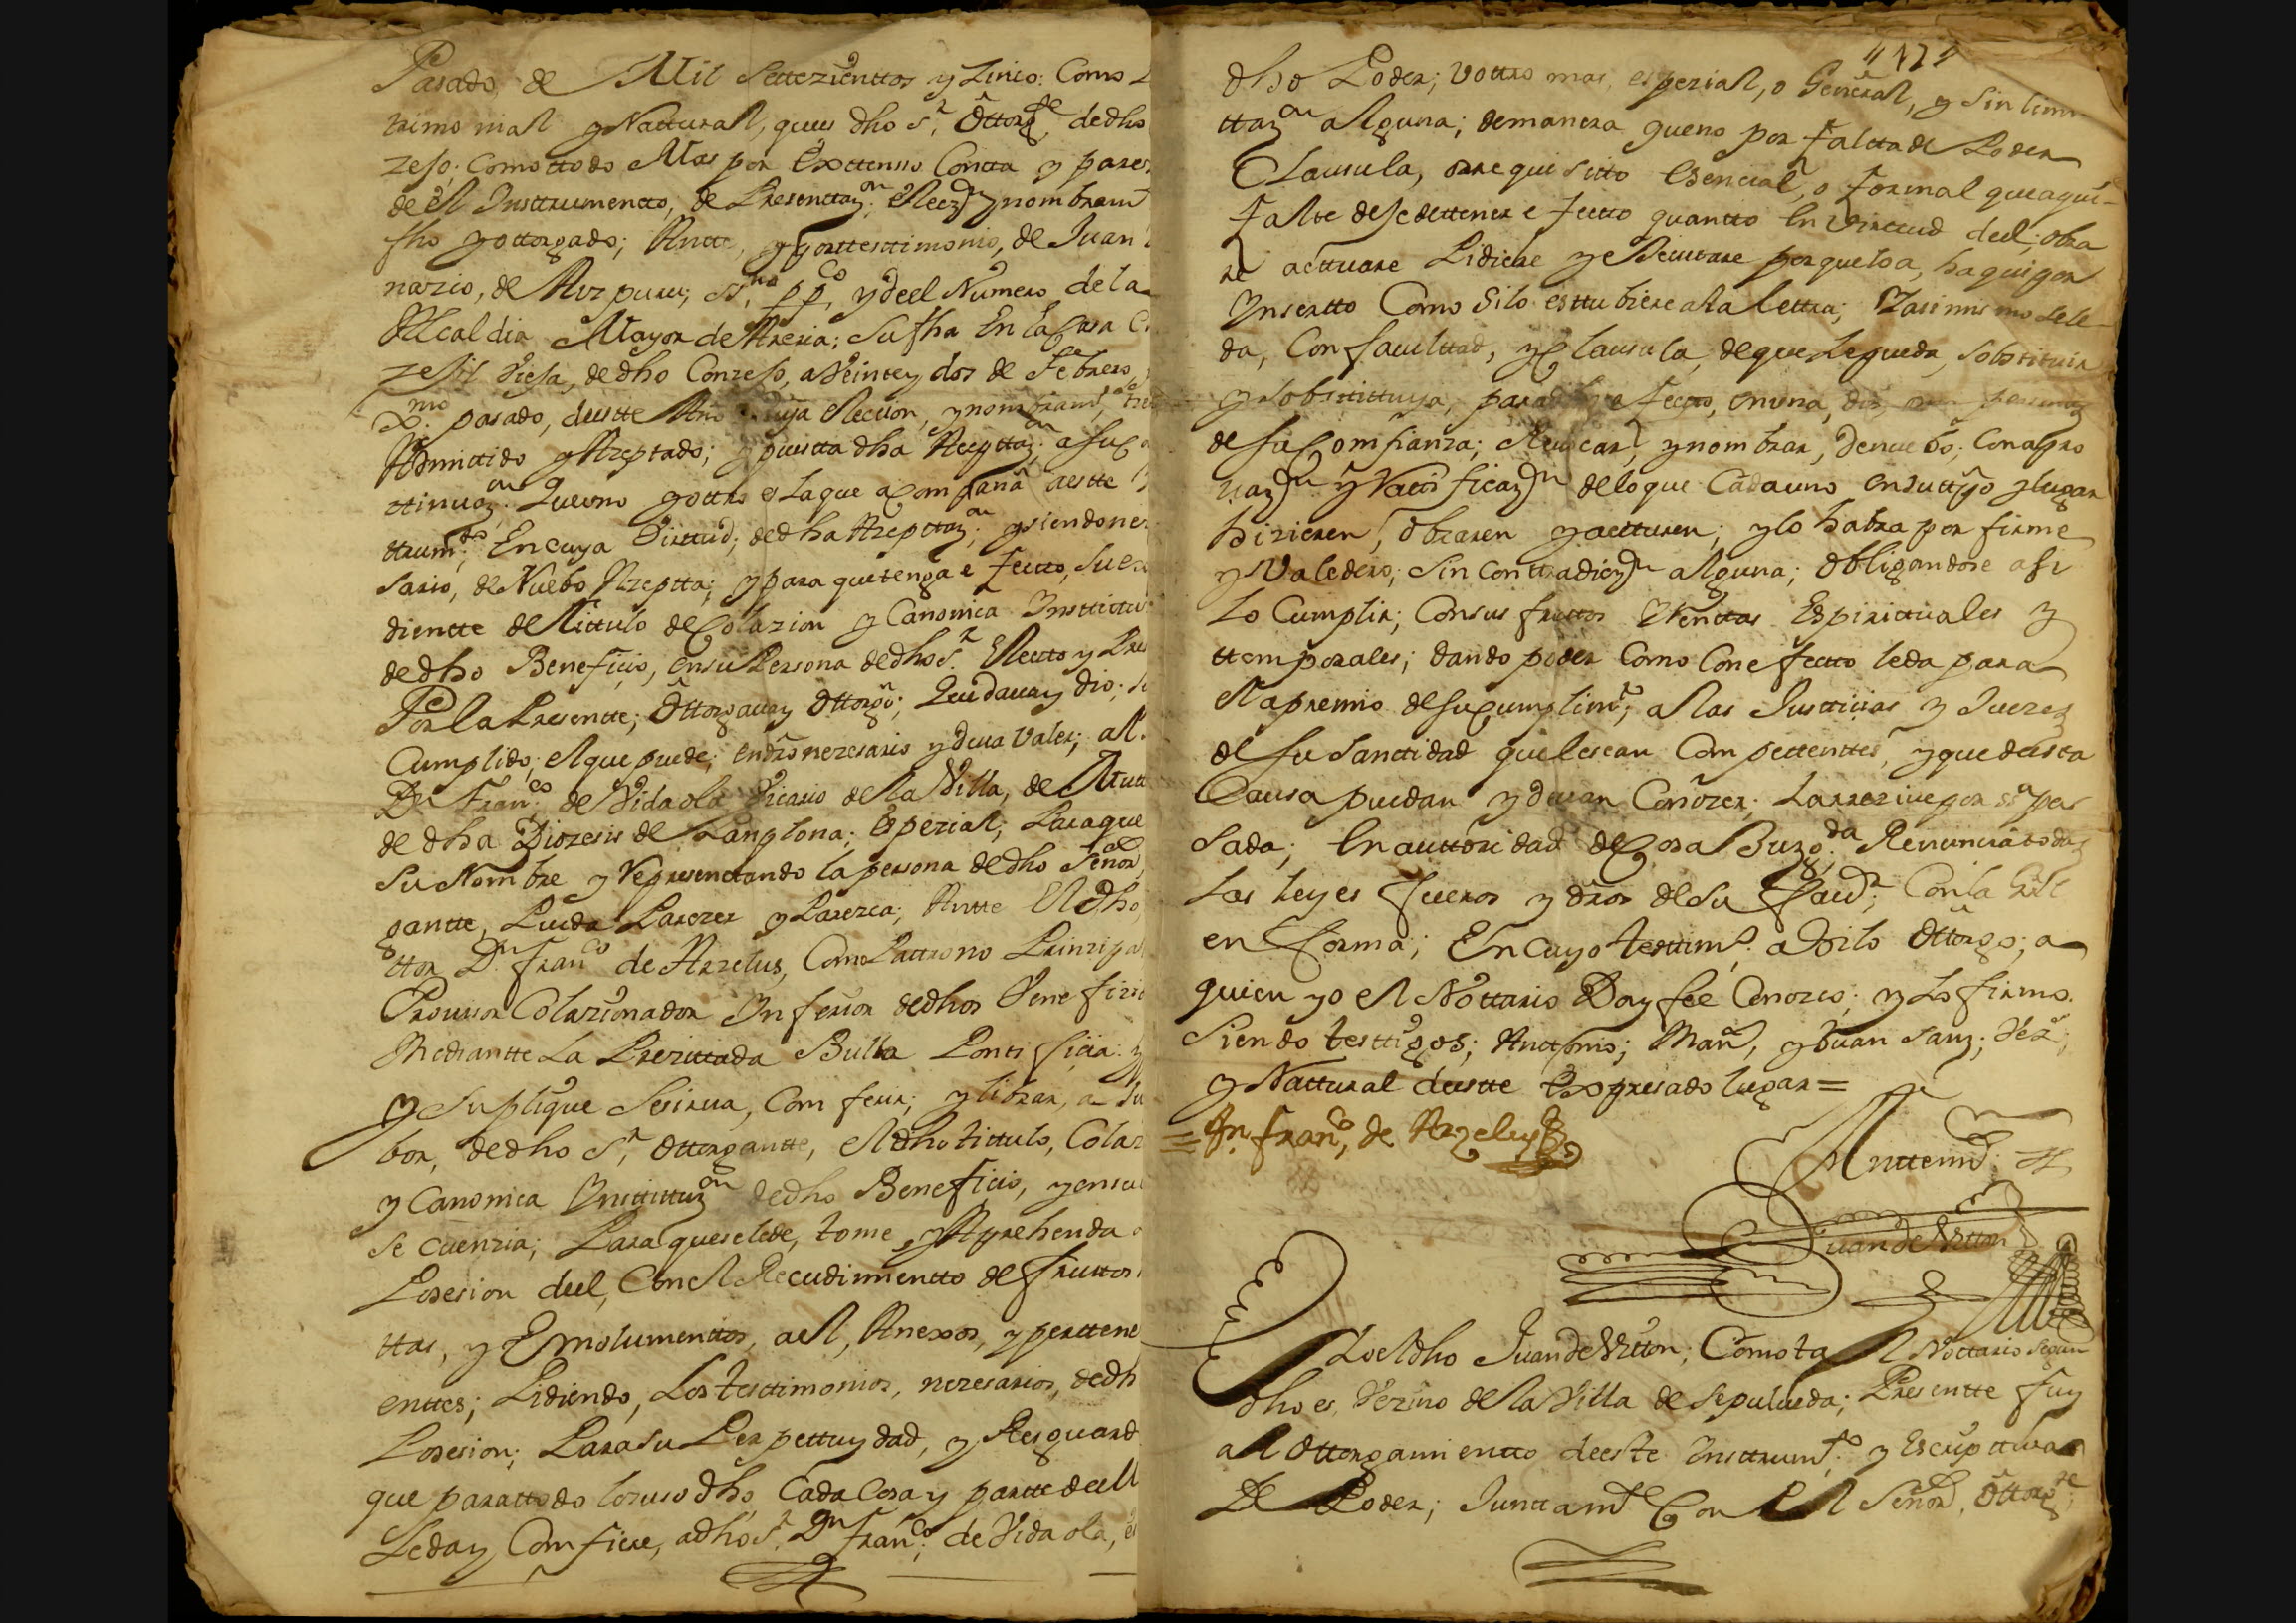 Pasado, de Mil Settezienttos y Zinco: Como
trimonial y Nattural, que es dho Sr. Ottorgte. de dho
zejo; Como ttodo Mas por Exttenso Constta y pares
de el Insttrumentto, de Presenttazon. Elecz.on y nombram
fho y ottorgado; Antte, y por testtimonio, de Juan
nazio, de Mizpuru; ss.no ppco, y de el Numero de la
Alcaldia Mayor de Areria; Su fha En la Casa
zejil Viesa, de dho Conzejo, a Veintte y dos de Febrero,
Pmo. pasado, de estte Año Cuya Eleccion, y nombramto,
Admittido y Azeptado; y puestta dha Azepttazon. a su
ttinuazon. Que uno y ottro es La que acompaña a estte
ttrumto; En cuya Virttud; de dha Azepttazon; y siendo nes
sario, de Nuebo Azeptta; y para que tenga efectto, su
dientte de Tittulo de Colazion y Canonica Insttittu
de dho Beneficio, en su Persona de dho Sr. Electto y Pre
Por la Presentte; Ottorgava y Ottorgó; Que dava y dio; su
Cumplido; el que puede; en dro nezesario y deva Valer; al
Dn. Franco. de Vidaola Vicario de la Villa, de Atau
de dha Diozesis de Pamplona; Espezial; Para que
Su Nombre y Representtando la persona de dho Señor
gantte, Pueda Parezer y Parezca; Antte El dho
ttor Dn. Franco de Arzelus, Como Pattrono Prinzipal
Provisor Colazionador Inferior de dhos Benefizio
Mediantte La Prezittada Bulla Pontificia: y
y Suplique Se sirva, Com ferir; y librar, a su
bor, de dho Sr, Ottorgantte, el dho tittulo, Colaz
y Canonica Insttittuzon de dho Beneficio, y en su
se cuenzia; Para que se le de, tome, y Aprehenda
Posesion de el, Con el Recudimientto de fruttos
ttas, y Emolumenttos, a el, Anexos, y perttene
enttes; Pidiendo, Los testtimonios, nezesarios, de dh
Posesion; Para su Perpettuydad, y Resguard
que para ttodo lo suso dho, Cada Cosa y partte de ell
Le da y Com fiere, a dho Sr. Dn Franco; de Vidaola,
dho Poder; v ottro mas, espezial, o General, y sin limi
ttazon alguna; de manera que no por faltta de Poder
Clausula, o rrequisitto Esencial, o formal que aqui
falte deje de ttener efectto quantto En Virttud de el; obra
re acttuare Pidiere y eJecuttare porque lo a, ha qui por
Insertto Como Silo esttubiere a la lettra; Y asimismo se le
da, Con facultad, y Clausula, de que Le pueda, Sobstituir
y Sobstittuya, para dho efectto, en una, dos,
de su Comfianza; Revocar, y nombrar, de nuebo; Con apro
vazon y Rattificazon de lo que Cada uno en su ttpo y lugar
hizieren, Obraren y actturen; y lo habra por firme
y Valedero; Sin Conttradiczon alguna; Obligandose asi
Lo Cumplir; Con sus fruttos Y Renttas Espirittuales y
ttemporales; dando poder Como Con efectto le da para
el apremio de su Cumplimto; a las Justticias y Juezes
de su Santtidad que le sean Compettenttes, y que de esta
Causa puedan y devan Conozer; La rrezive por ssa pas
Sada; En auttoridad de Cosa Juzgda. Renuncia todas
Las Leyes fueros y dros de su favr; Con la Gral
en forma; En cuyo testtimo. asi lo Ottorgo; a
quien yo el Nottario Doy fee Conozco; y Lo firmo.
Siendo testtigos; Anttonio; Man, y Juan Sanz; Vezs;
y Nattural de estte Expresado lugar=
= Dn. Franco, de Arzelus
Anttemi
Juan de Antton
Yo el dho Juan de Antton; Como tal Nottario Segun
dho es, Vezino de la Villa de Sepulveda; Presentte fuy
al Ottorgamientto de este Insttrumto. y Escripttura
De Poder; Junttamte Con el Señor, Ottorgte;